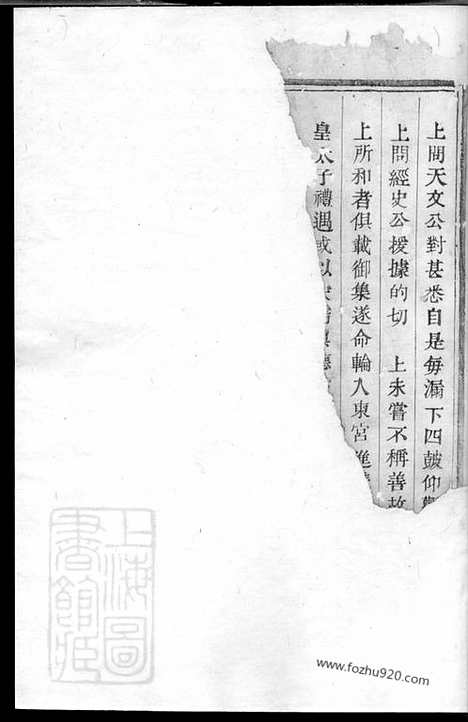 上問天文公對甚悉自是每漏下四鼓仰
上問經史公援據的切　上未嘗不稱善故
上所和者俱載御集遂命輪入東宮進
皇太子禮遇或以
上海圖書館藏
www.fozhu920.com